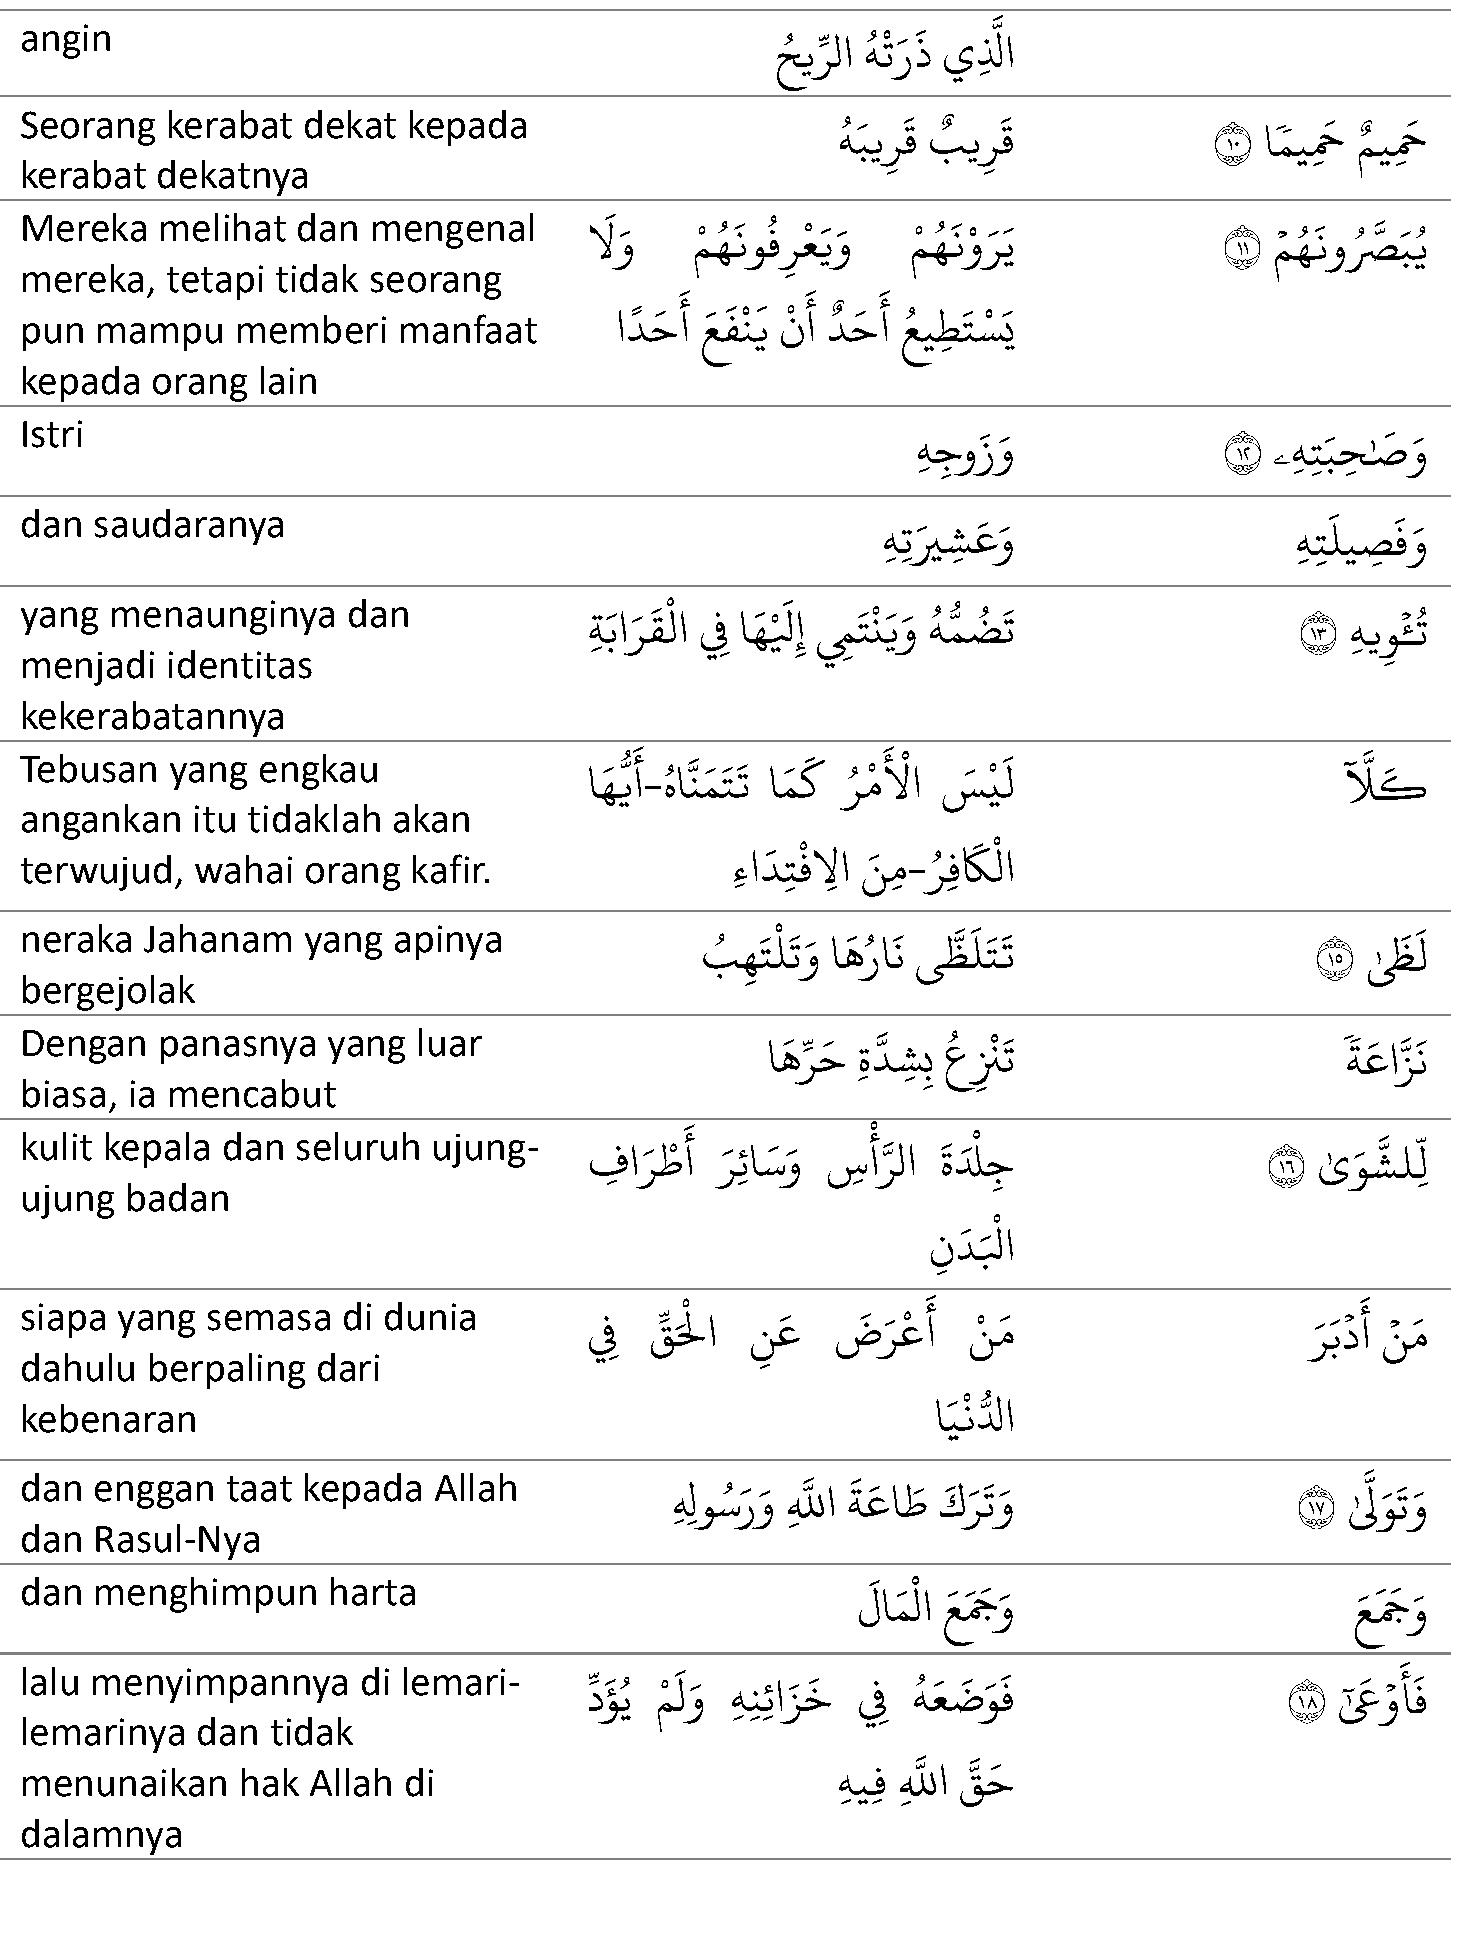 angin
الَّذِي ذَرَتْهُ الرِّيحُ
Seorang kerabat dekat kepada
kerabat dekatnya
قَرِيبٌ قَرِيبَهُ
حَمِيمٌ حَمِيمًا ١٠
Mereka melihat dan mengenal
mereka, tetapi tidak seorang
pun mampu memberi manfaat
kepada orang lain
يَرَوْنَهُمْ وَيَعْرِفُونَهُمْ وَلَا
يَسْتَطِيعُ أَحَدٌ أَنْ يَنْفَعَ أَحَدًا
يُبَصَّرُونَهُمْ ١١
Istri
وَزَوجِهِ
وَصَٰحِبَتِهِۦ ١٢
dan saudaranya
وَعَشِيرَتِهِ
وَفَصِيلَتِهِ
yang menaunginya dan
menjadi identitas
kekerabatannya
تَضُمُّهُ وَيَنْتَمِي إِلَيْهَا فِي الْقَرَابَةِ
تُـْٔوِيهِ ١٣
Tebusan yang engkau
angankan itu tidaklah akan
terwujud, wahai orang kafir.
لَيْسَ الْأَمْرُ كَمَا تَتَمَنَّاهُ-أَيُّهَا
الْكَافِرُ-مِنَ الِافْتِدَاءِ
كَلَّآ
neraka Jahanam yang apinya
bergejolak
تَتَلَظَّى نَارُهَا وَتَلْتَهِبُ
لَظَىٰ ١٥
Dengan panasnya yang luar
biasa, ia mencabut
تَنْزِعُ بِشِدَّةِ حَرِّهَا
نَزَّاعَةً
kulit kepala dan seluruh ujung-
ujung badan
جِلْدَةَ الرَّأْسِ وَسَائِرَ أَطْرَافِ
الْبَدَنِ
لِّلشَّوَىٰ ١٦
siapa yang semasa di dunia
dahulu berpaling dari
kebenaran
مَنْ أَعْرَضَ عَنِ الْحَقِّ فِي
الدُّنْيَا
مَنْ أَدْبَرَ
dan enggan taat kepada Allah
dan Rasul-Nya
وَتَرَكَ طَاعَةَ اللَّهِ وَرَسُولِهِ
وَتَوَلَّىٰ ١٧
dan menghimpun harta
وَجَمَعَ الْمَالَ
وَجَمَعَ
lalu menyimpannya di lemari-
lemarinya dan tidak
menunaikan hak Allah di
dalamnya
فَوَضَعَهُ فِي خَزَائِنِهِ وَلَمْ يُؤَدِّ
حَقَّ اللَّهِ فِيهِ
فَأَوْعَىٰٓ ١٨